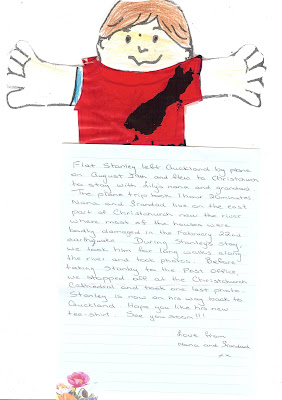 Flat Stanley left Auckland by plane
on August and flew to Christchurch
to stay with nana and grandad.
The plane trip took 1 hour 20 minutes
Nana and Grandad live on the east
part of Christchurch near the river
where most of the houses were
badly damaged in the February 22nd
earthquake. During Stanley's stay,
we took him for long walks along
the river and took photos. Before
taking Stanley to the Post Office,
we stopped off at the Christchurch
Cathedral and took one last photo.
Stanley is now on his way back to
Auckland. Hope you like his new
tee-shirt. See you soon!!!
Love from
Nana and Grandad
xx